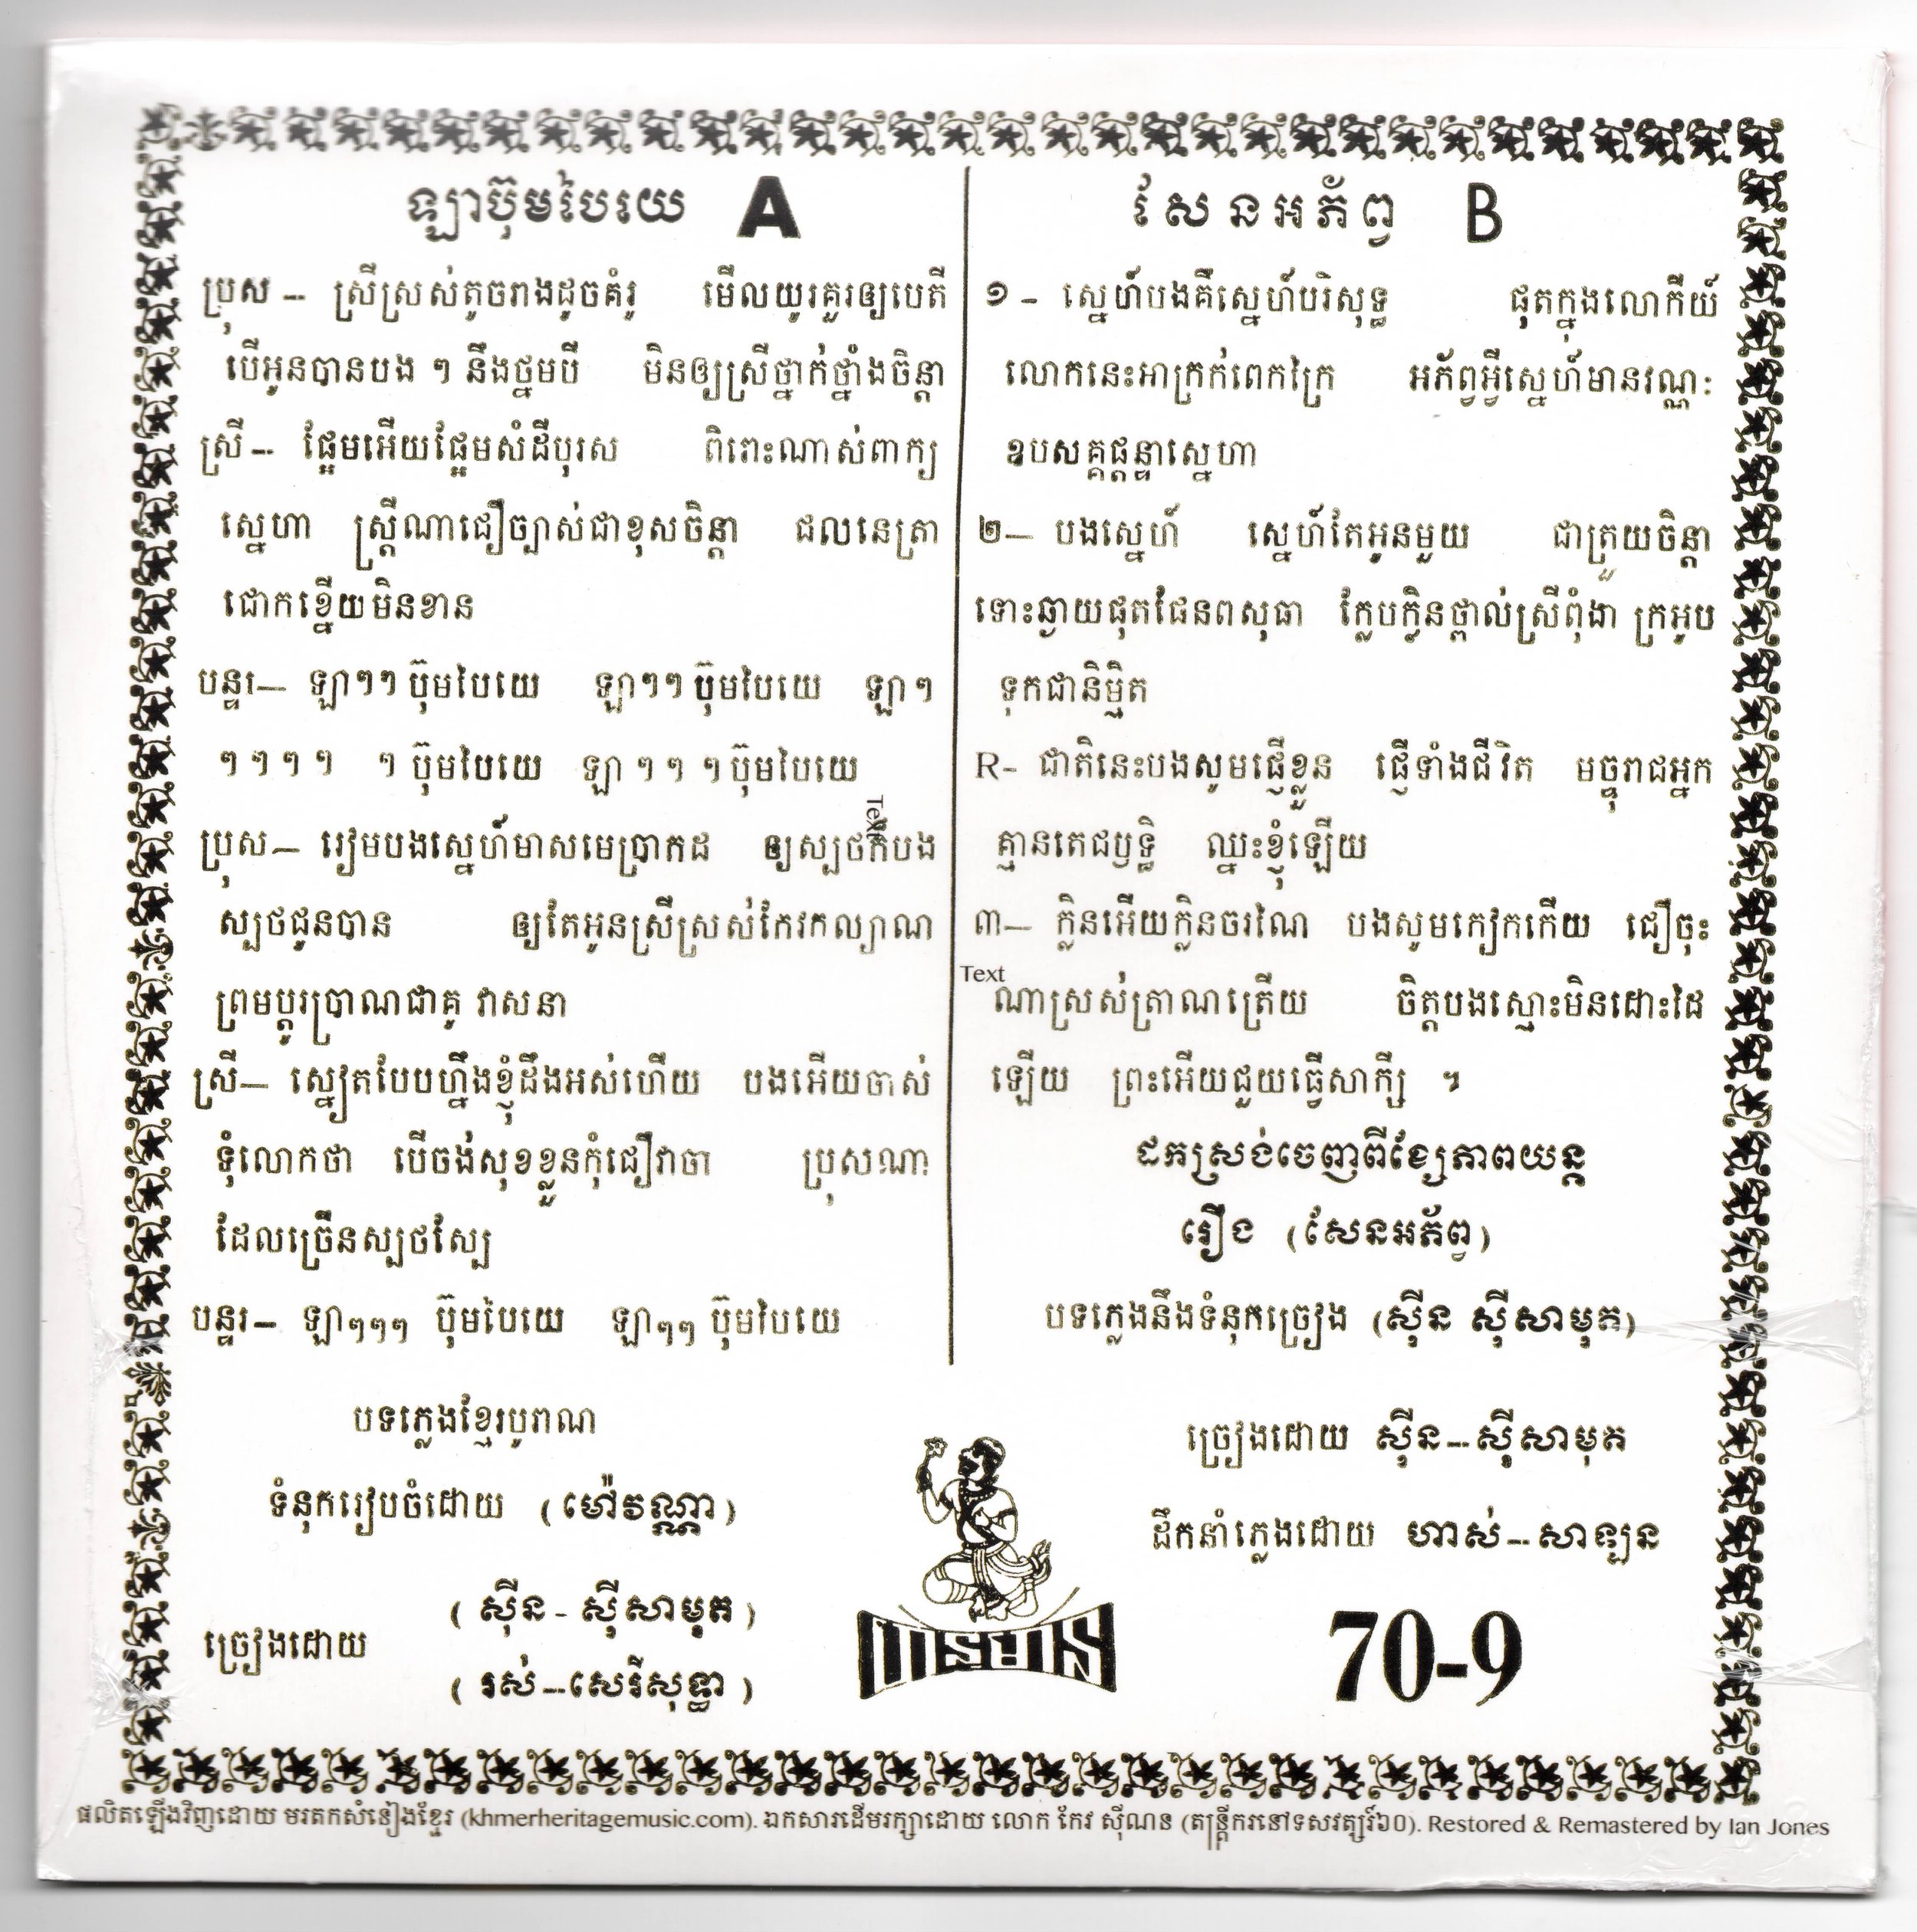 ឡាប៊ុមបៃយេ A
ប្រុស -- ស្រីស្រស់តូចរាងដូចគំរូ មើលយូរគួរឲ្យបេតី
បើអូនបានបង ៗ នឹងថ្នមបី មិនឲ្យស្រីថ្នាក់ថ្នាំងចិន្តា
ស្រី -- ផ្អែមអើយផ្អែមសំដីបុរស ពិរោះណាស់ពាក្យ
ស្នេហា ស្ត្រីណាជឿច្បាស់ជាខុសចិន្តា ជលនេត្រា
ជោកខ្នើយមិនខាន
បន្ទរ— ឡាៗៗ ប៊ុមបៃយេ ឡាៗៗ ប៊ុមបៃយេ ឡាៗ
ៗ ៗ ៗ ៗ ៗ ប៊ុមបៃយេ ឡា ៗ ៗ ៗ ប៊ុមបៃយេ
Text
ប្រុស— រៀមបងស្នេហ៍មាសមេប្រាកដ ឲ្យស្បថក៏បង
ស្បថជូនបាន ឲ្យតែអូនស្រីស្រស់កែវកល្យាណ
ព្រមប្តូរប្រាណជាគូ វាសនា
ស្រី— ស្នៀតបែបហ្នឹងខ្ញុំដឹងអស់ហើយ បងអើយចាស់
ទុំលោកថា បើចង់សុខខ្លួនកុំជឿវាចា ប្រុសណា
ដែលច្រើនស្បថស្បែ
បន្ទរ— ឡាៗៗៗ ប៊ុមបៃយេ ឡាៗៗ ប៊ុមបៃយេ
បទភ្លេងខ្មែរបូរាណ
ទំនុករៀបចំដោយ (ម៉ៅវណ្ណា)
ច្រៀងដោយ
( ស៊ីន - ស៊ីសាមុត )
( រស់--សេរីសុទ្ធា )
សែនអភ័ព្វ B
១ - ស្នេហ៍បងគឺស្នេហ៍បរិសុទ្ធ ផុតក្នុងលោកីយ៍
លោកនេះអាក្រក់ពេកក្រៃ អភ័ព្វអ្វីស្នេហ៍មានវណ្ណៈ
ឧបសគ្គផ្តន្ទាស្នេហា
២— បងស្នេហ៍ ស្នេហ៍តែអូនមួយ ជាត្រួយចិន្តា
ទោះឆ្ងាយផុតដែនពសុធា ក្លែបក្លិនថ្ពាល់ស្រីពុំងា ក្រអូប
ទុកជានិម្មិត
R- ជាតិនេះបងសូមផ្ញើខ្លួន ផ្ញើទាំងជីវិត មច្ចុរាជអ្នក
គ្មានតេជឫទ្ធិ ឈ្នះខ្ញុំឡើយ
៣— ក្លិនអើយក្លិនចរណៃ បងសូមភៀកកើយ ជឿចុះ
Text
ណាស្រស់ត្រាណត្រើយ ចិត្តបងស្មោះមិនដោះដៃ
ឡើយ ព្រះអើយជួយធ្វើសាក្សី ។
ដកស្រង់ចេញពីខ្សែភាពយន្ត
រឿង (សែនអភ័ព្វ)
បទភ្លេងនឹងទំនុកច្រៀង (ស៊ីន ស៊ីសាមុត)
ច្រៀងដោយ ស៊ីន--ស៊ីសាមុត
ដឹកនាំភ្លេងដោយ ហាស់--សាឡន
70-9
ផលិតឡើងវិញដោយ មរតកសំនៀងខ្មែរ (khmerheritagemusic.com). ឯកសារដើមរក្សាដោយ លោក កែវ ស៊ីណន (តន្ត្រីករនៅទសវត្សរ៍៦០). Restored & Remastered by Ian Jones